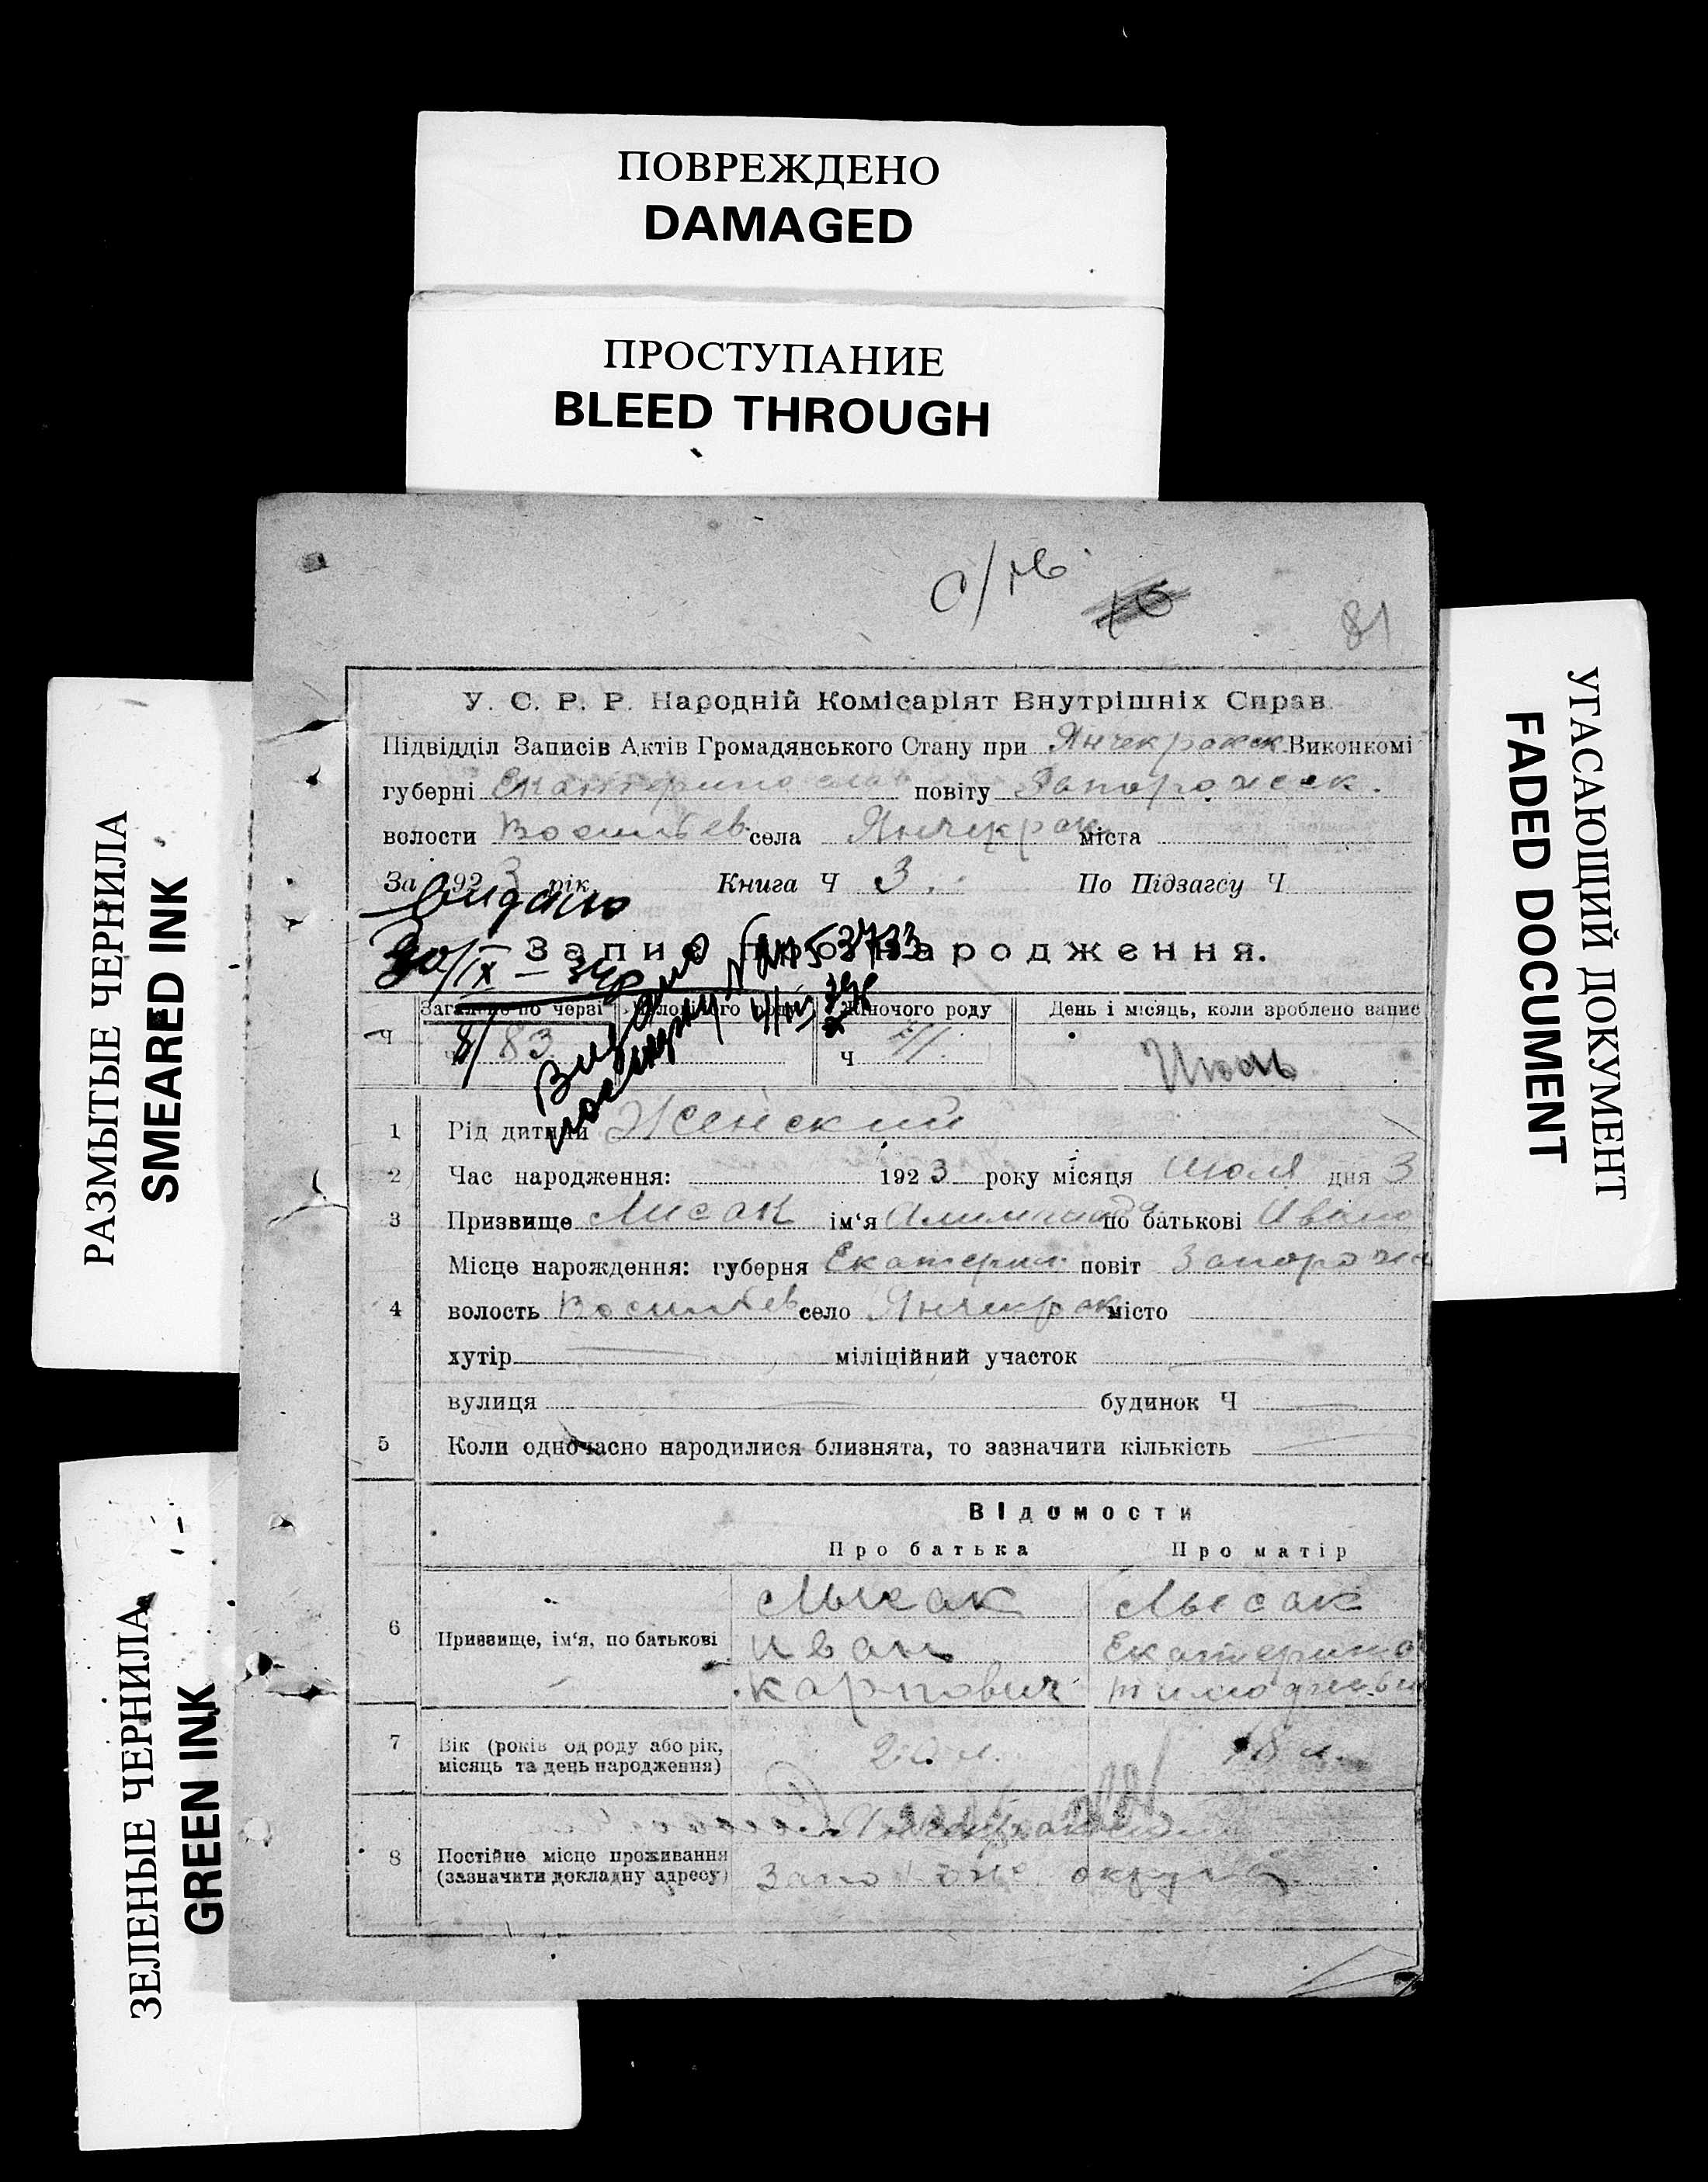 ПОВРЕЖДЕНО
DAMAGED
ПРОСТУПАНИЕ
BLEED THROUGH
РАЗМЫТЫЕ ЧЕРНИЛА
SMEARED INK
ЗЕЛЕНЫЕ ЧЕРНИЛА
GREEN INK
УГАСАЮЩИЙ ДОКУМЕНТ
FADED DOCUMENT
81
У. С. Р. Р. Народній Комісаріят Внутрішніх Справ
Підвідділ Записів Актів Громадянського Стану при Янчекракск Виконкомі
губерні Екатеринослав повіту Запорожск.
волости Васильев села Янчекрак міста
За 1923 рік Книга Ч 3. По Підзагсу Ч
Видано
30/IX
Запис про народження.
Видано
Загально по черзі Чоловічого роду Жіночого роду День і місяць, коли зроблено запис
Ч 83 Ч Июль
1 Рід дитини Женский
2 Час народження: 1923 року місяця Июля дня 3
3 Призвище Лисак ім'я Алимпиада по батькові Ивано
Місце нарождення: губерня Екатерин повіт Запорож
4 волость Васильев село Янчекрак місто
хутір міліційний участок
вулиця будинок Ч
5 Коли одночасно народилися близнята, то зазначити кількість
Відомости
Про батька Про матір
6 Призвище, ім'я, по батькові
Лысак Лысак
Иван Екатерина
Карпович Тимофеевн
7 Вік (років од роду або рік, місяць та день народження) 20 л. 18 л.
8 Постійне місце проживання
(зазначити докладну адресу) округа